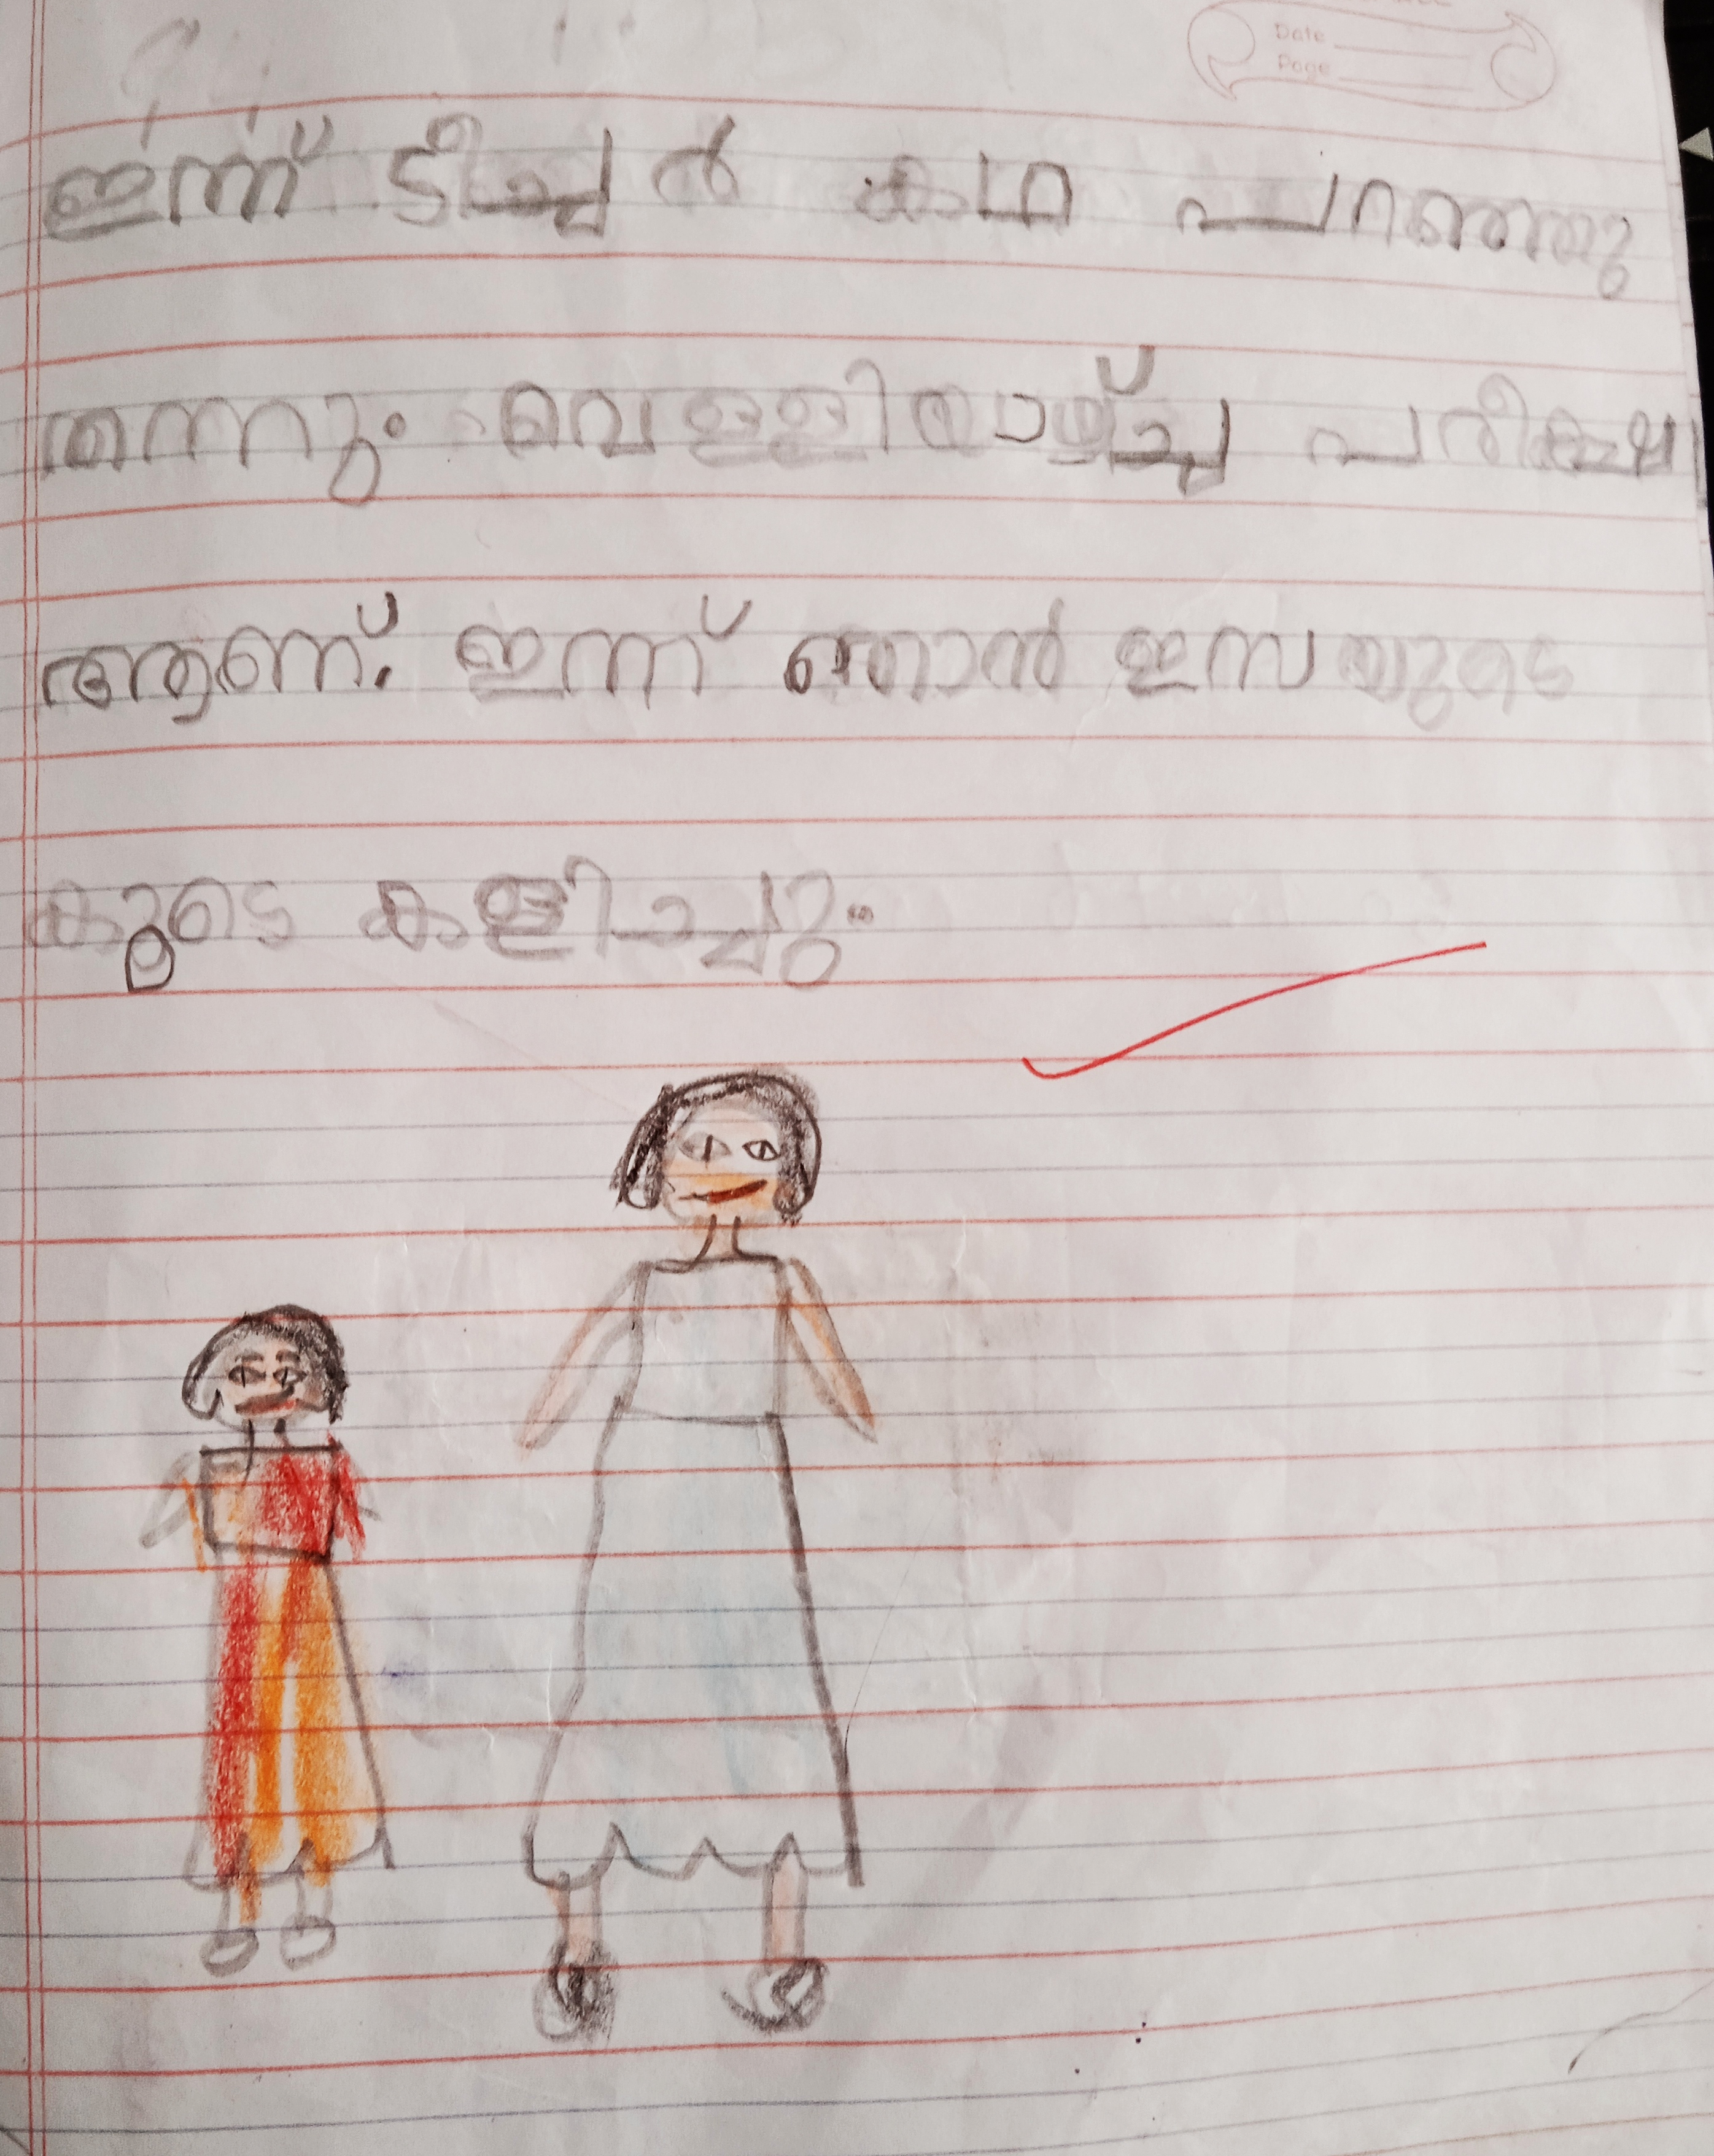 Date
Page
ഇന്ന് ടീച്ചർ കഥ പറഞ്ഞു
തന്നു. വെള്ളിയാഴ്ച്ച പരീക്ഷ
ആണ്. ഇന്ന് ഞാൻ ഇസയുടെ
കൂടെ കളിച്ചു.